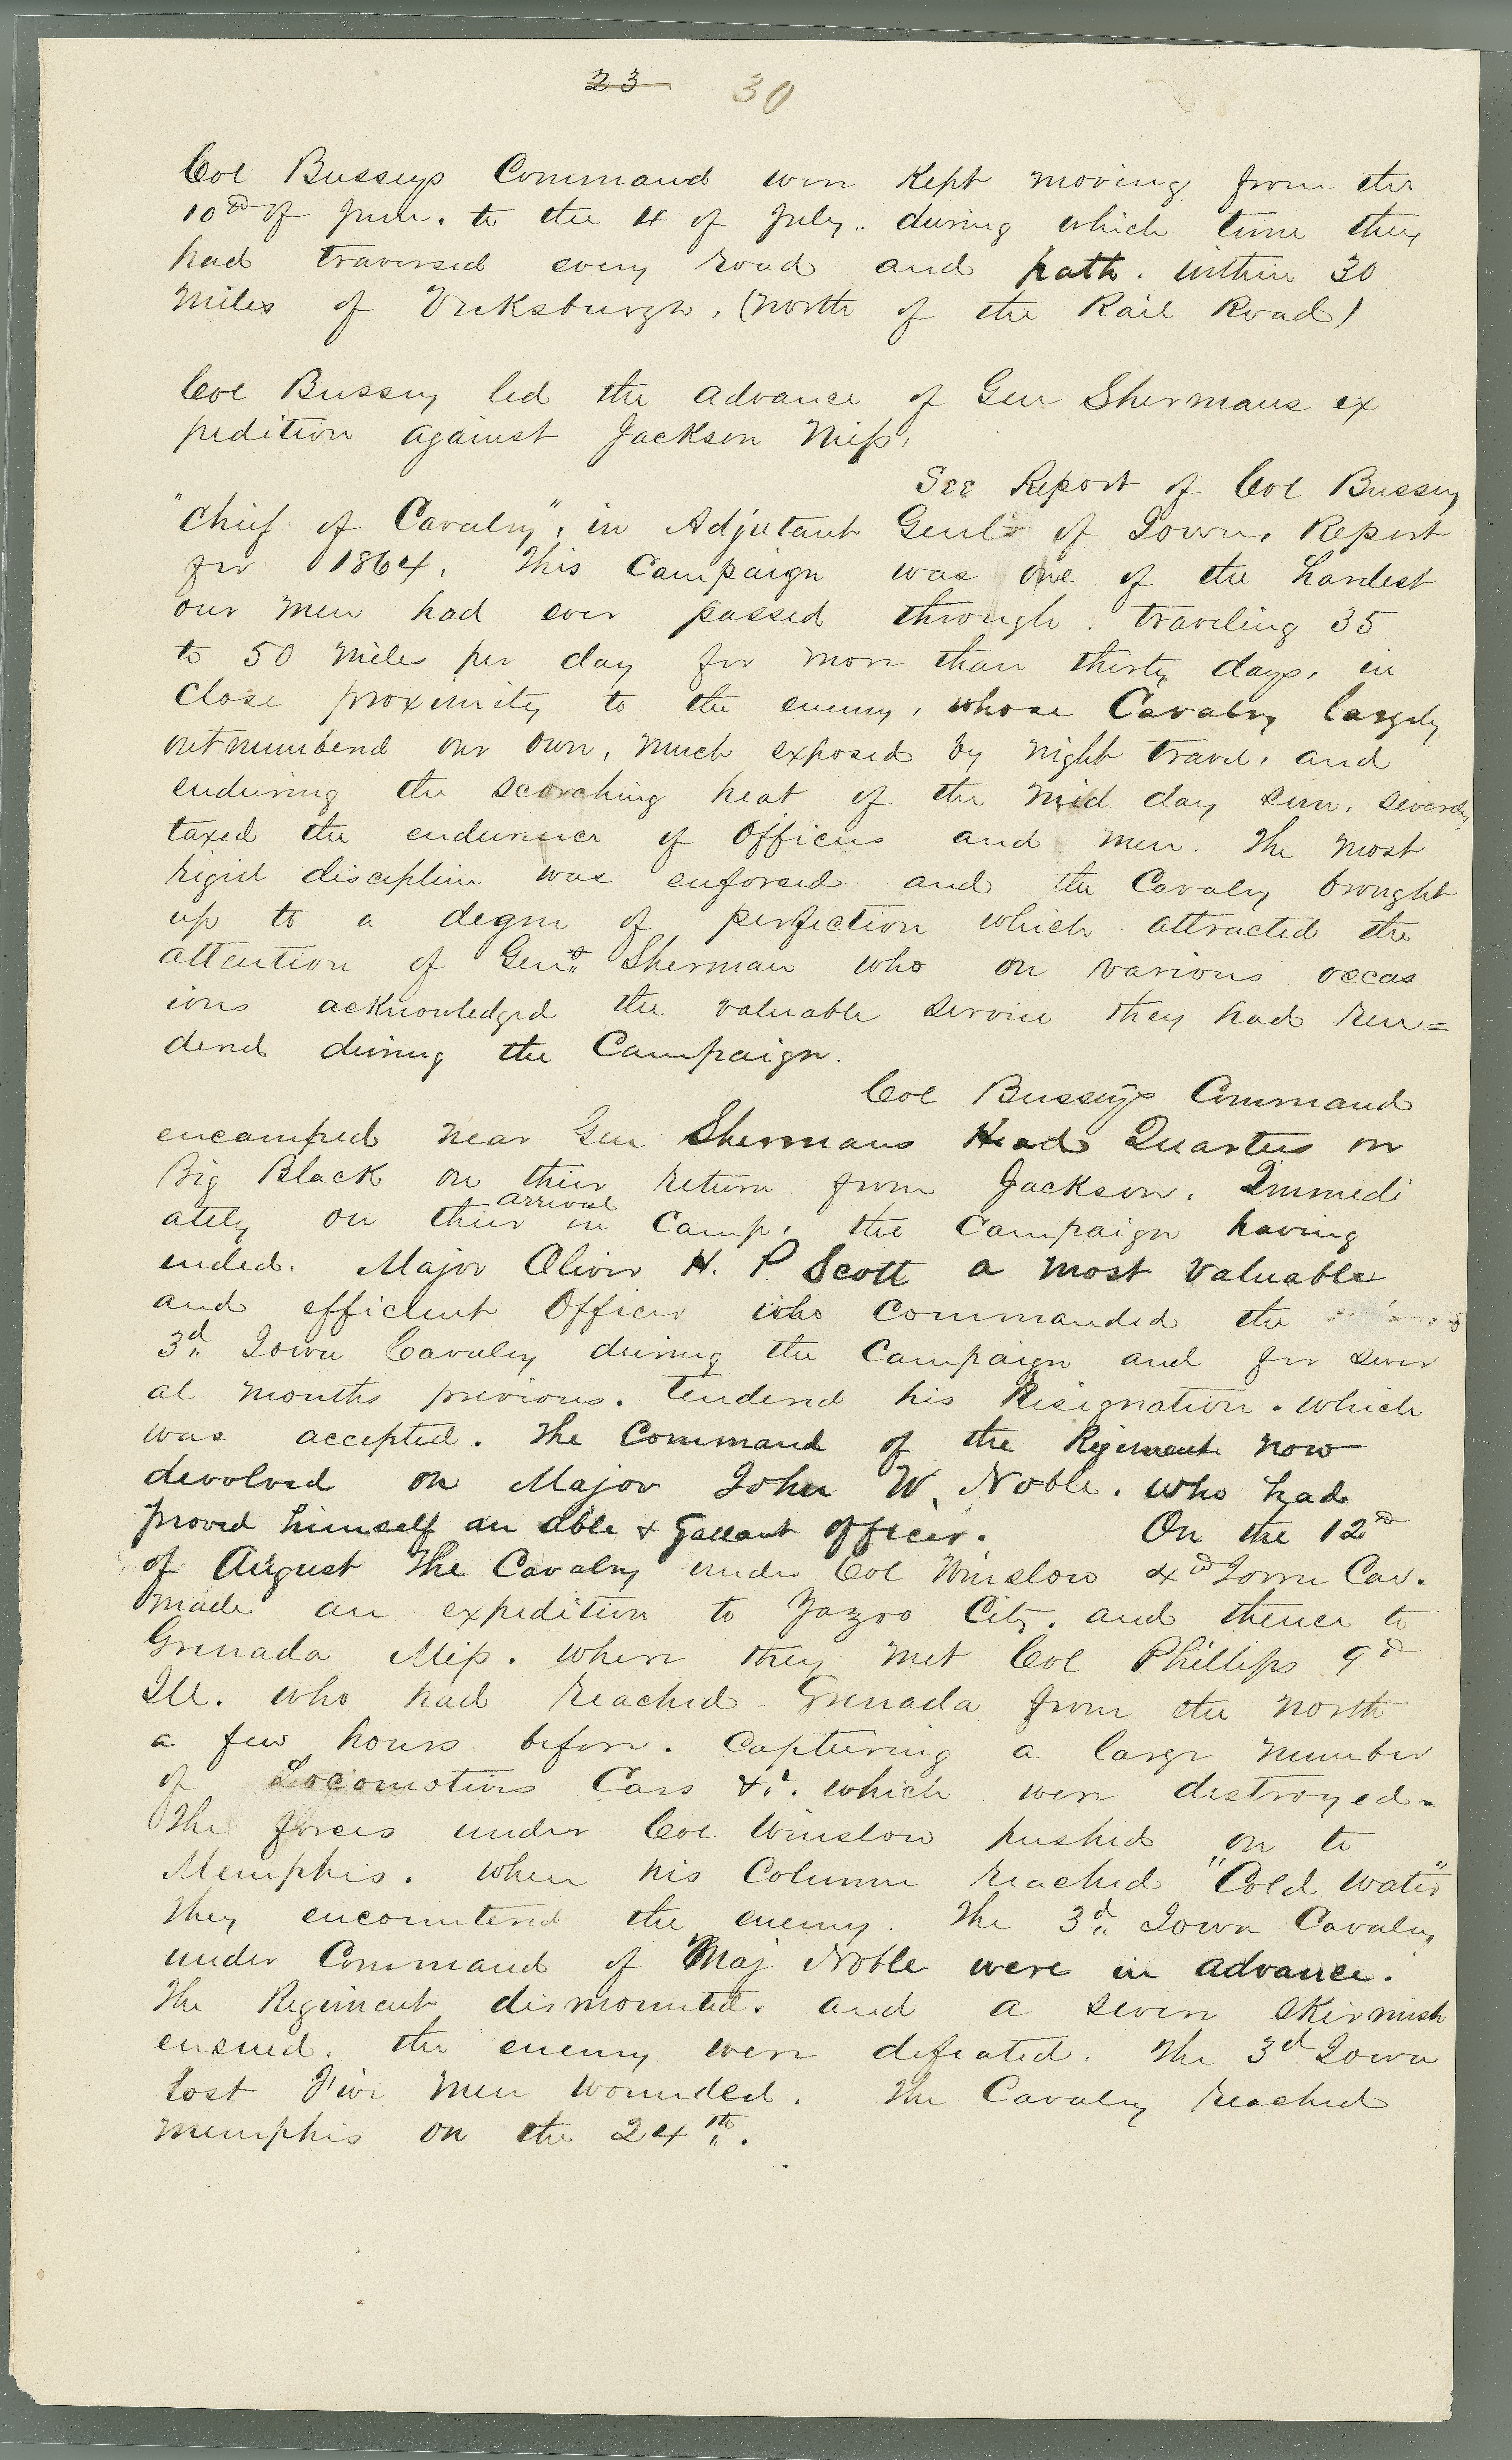 23 30
Col Busseys Command were kept moving from the
10th of June. to the 4 of July.. during which time they
had traversed every road and path. within 30
Miles of Vicksburgh, (north of the Rail Road)
Col Bussey led the advance of Gen Shermans ex
pedition against Jackson Miss,
See Report of Col Bussey
"Chief of Cavalry", in Adjutant Genls of Iowa, Report
for 1864. This Campaign was one of the hardest
our men had ever passed through. traveling 35
to 50 miles per day for more than thirty days, in
close proximity to the enemy, whose Cavalry largely
outnumbered our own, much exposed by night travel, and
enduring the scorching heat of the mid day sun, severely
taxed the endurance of Officers and men. The most
rigid discipline was enforced and the Cavalry brought
up to a degree of perfection which attracted the
attention of Genl Sherman who on various occas
ions acknowledged the valuable service they had ren=
dered during the Campaign.
Col Busseys Command
encamped near Gen Shermans Head Quarters on
Big Black on their return from Jackson. Immedi
ately on their arrival in Camp, the Campaign having
ended. Major Oliver H. P. Scott a most valuable
and efficient Officer who commanded the
3d Iowa Cavalry during the Campaign and for sever
al months previous. tendered his Resignation. which
was accepted. The Command of the Regiment now
devolved on Major John W. Noble. who had
proved himself an able & gallant officer. On the 12th
of August the Cavalry under Col Winslow 4th Iowa Cav.
made an expedition to Yazoo City. and thence to
Grenada Miss. where they met Col Phillips 9th
Ill. who had reached Grenada from the north
a few hours before. capturing a large number
of Locomotives Cars &c. which were destroyed.
The forces under Col Winslow pushed on to
Memphis. When his Column reached "Cold Water"
they encountered the enemy. The 3d Iowa Cavalry
under Command of Maj Noble were in advance.
The Regiment dismounted. and a severe skirmish
ensued. the enemy were defeated. The 3d Iowa
lost Five men wounded. The Cavalry reached
Memphis on the 24th.